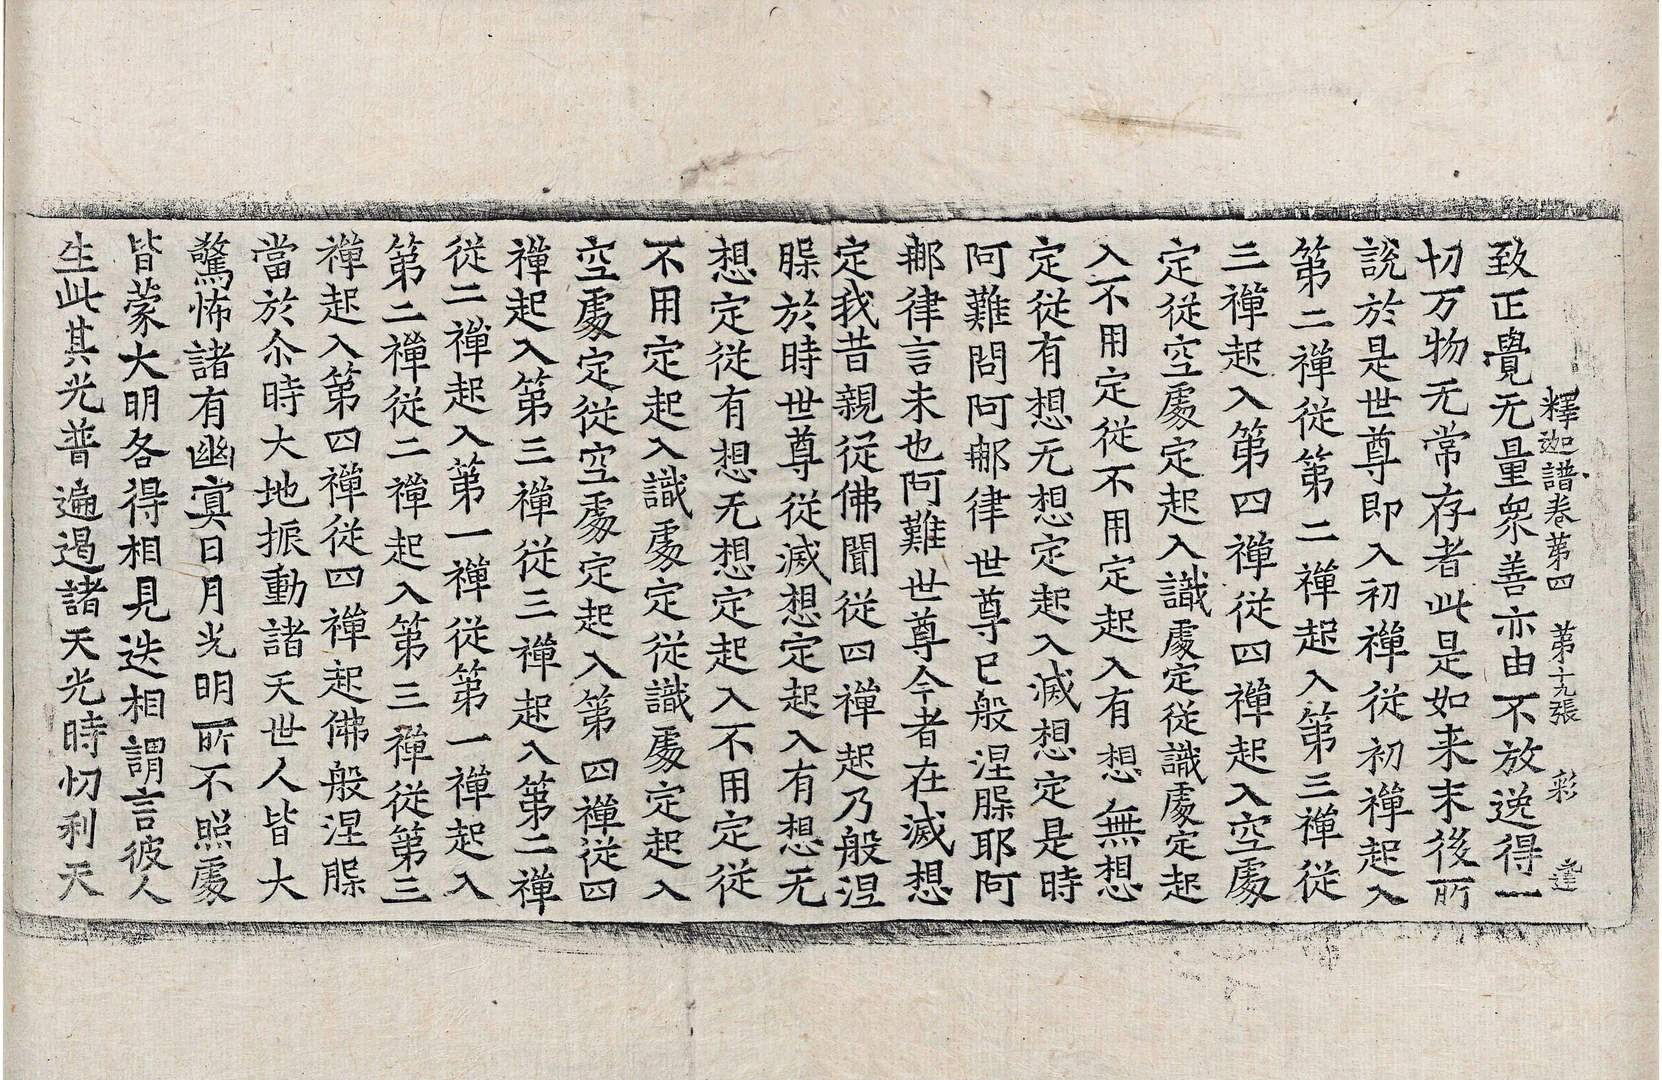 釋迦譜卷第四 第十九張 彩 達
致正覺无量衆善亦由不放逸得一
切万物无常存者此是如来末後所
說於是世尊即入初禪從初禪起入
第二禪從第二禪起入第三禪從
三禪起入第四禪從四禪起入空處
定從空處定起入識處定從識處定起
入不用定從不用定起入有想無想
定從有想无想定起入滅想定是時
阿難問阿那律世尊已般涅槃耶阿
那律言未也阿難世尊今者在滅想
定我昔親從佛聞從四禪起乃般涅
槃於時世尊從滅想定起入有想无
想定從有想无想定起入不用定從
不用定起入識處定從識處定起入
空處定從空處定起入第四禪從四
禪起入第三禪從三禪起入第二禪
從二禪起入第一禪從第一禪起入
第二禪從二禪起入第三禪從第三
禪起入第四禪從四禪起佛般涅槃
當於尒時大地振動諸天世人皆大
驚怖諸有幽冥日月光明所不照處
皆蒙大明各得相見迭相謂言彼人
生此其光普遍過諸天光時忉利天